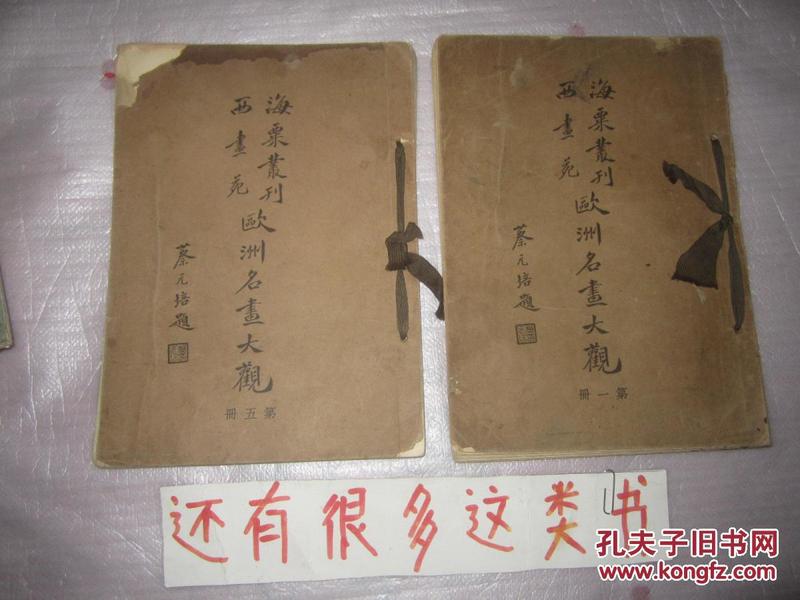 海粟叢刊
西畫苑
歐洲名畫大觀
蔡元培題
第五冊
海粟叢刊
西畫苑
歐洲名畫大觀
蔡元培題
第一冊
还有很多这类书
孔夫子旧书网
www.kongfz.com